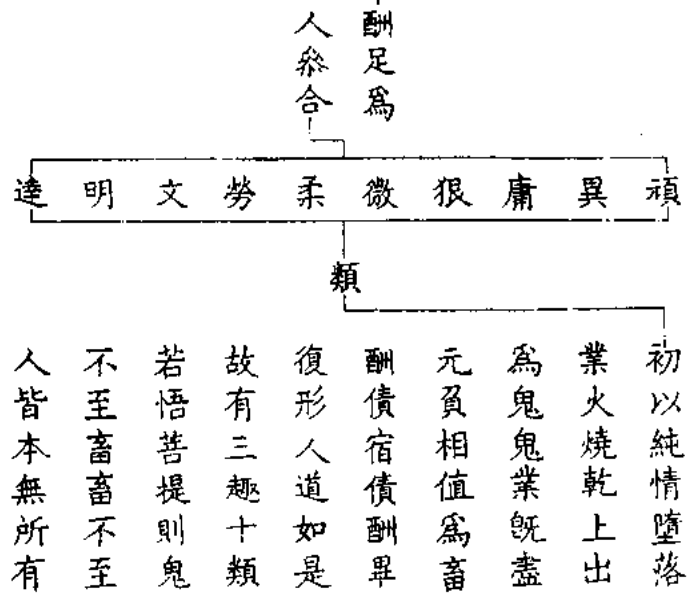 酬足爲
人叅合
頑
異
庸
狠
微
柔
勞
文
明
達
類
初以純情墮落
業火燒乾上出
爲鬼鬼業旣盡
元負相值爲畜
酬債宿債酬畢
復形人道如是
故有三趣十類
若悟菩提則鬼
不至畜畜不至
人皆本無所有